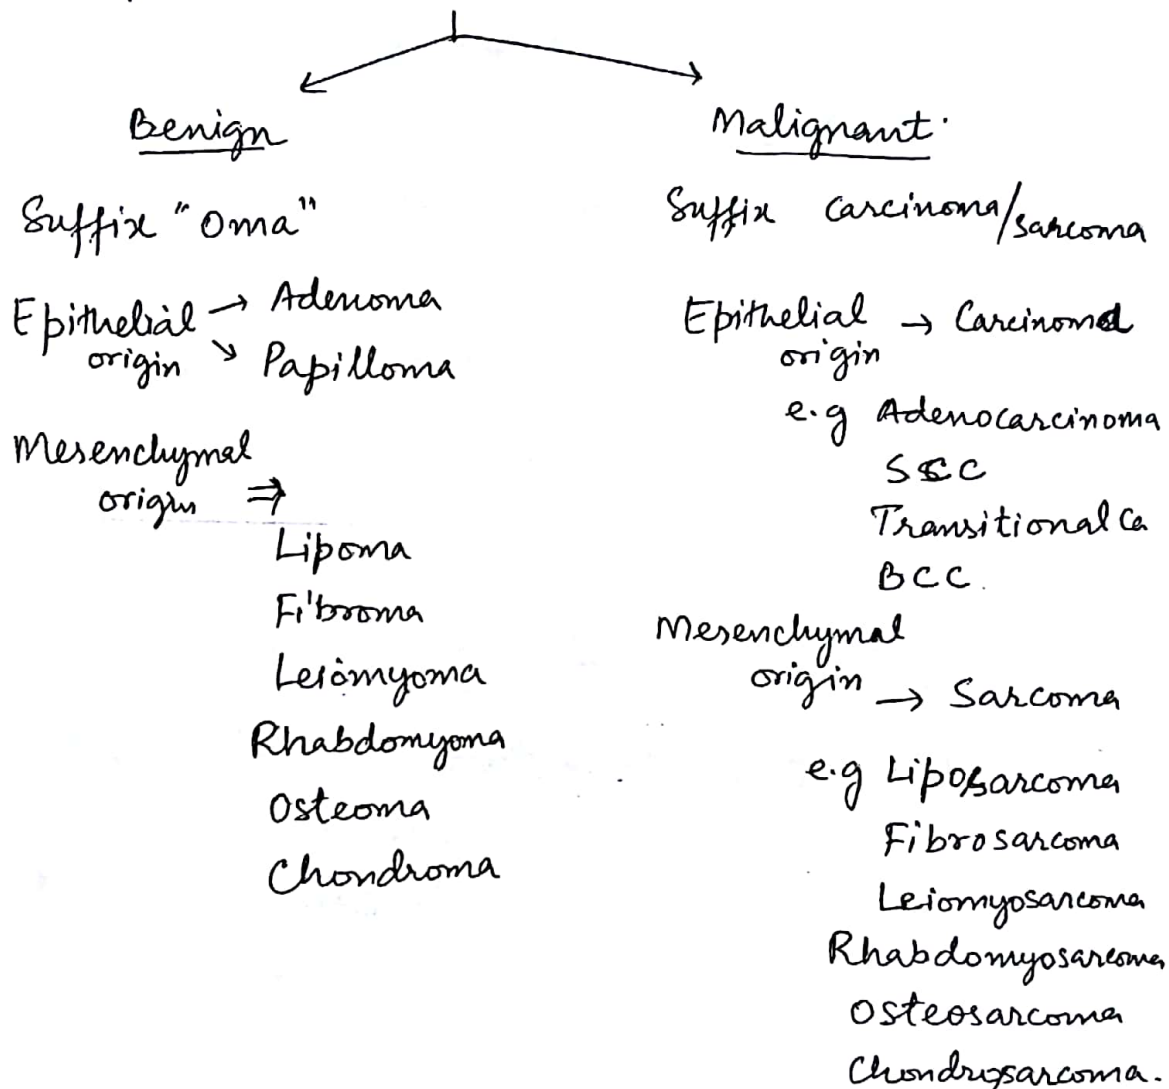 Benign
Suffix "Oma"
Epithelial origin → Adenoma
↘ Papilloma
Mesenchymal origin ⇒
Lipoma
Fibroma
Leiomyoma
Rhabdomyoma
Osteoma
Chondroma
Malignant.
Suffix Carcinoma/sarcoma
Epithelial origin → Carcinoma
e.g Adenocarcinoma
SCC
Transitional Ca
BCC.
Mesenchymal origin → Sarcoma
e.g Liposarcoma
Fibrosarcoma
Leiomyosarcoma
Rhabdomyosarcoma
Osteosarcoma
Chondrosarcoma.